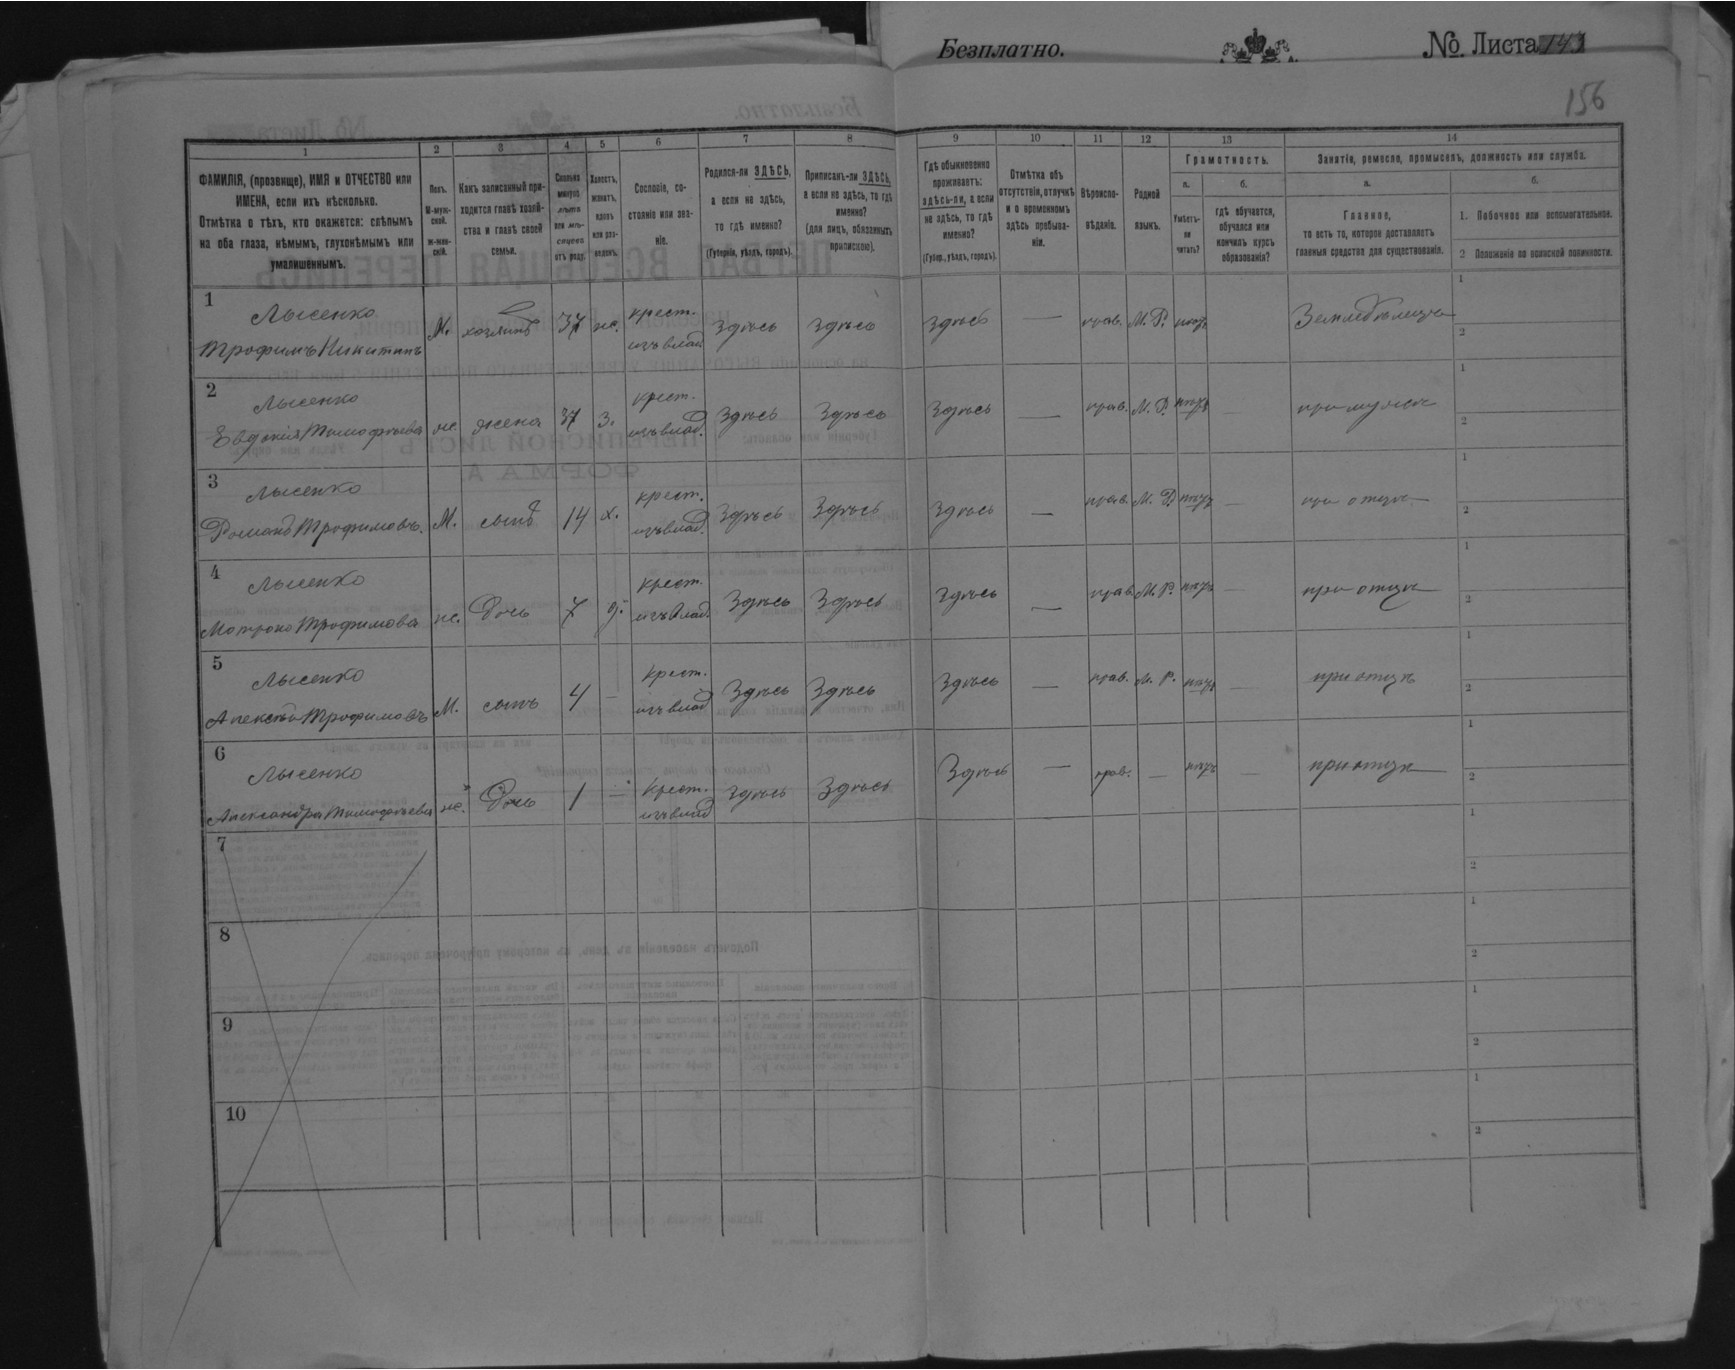 Безплатно.
№ Листа 143
156
1 2 3 4 5 6 7 8 9 10 11 12 13 14
ФАМИЛІЯ, (прозвище), ИМЯ и ОТЧЕСТВО или ИМЕНА, если ихъ нѣсколько.
Отмѣтка о тѣхъ, кто окажется: слѣпымъ на оба глаза, нѣмымъ, глухонѣмымъ или умалишеннымъ.
Полъ. М-мужской. Ж-женскій.
Какъ записанный приходится главѣ хозяйства и главѣ своей семьи.
Сколько минуло лѣтъ или мѣсяцевъ отъ роду.
Холостъ, женатъ, вдовъ или разведенъ.
Сословіе, состояніе или званіе.
Родился-ли ЗДѢСЬ, а если не здѣсь, то гдѣ именно? (Губернія, уѣздъ, городъ).
Приписанъ-ли ЗДѢСЬ, а если не здѣсь, то гдѣ именно? (для лицъ, обязанныхъ припискою).
Гдѣ обыкновенно проживаетъ: здѣсь-ли, а если не здѣсь, то гдѣ именно? (Губер., уѣздъ, городъ).
Отмѣтка объ отсутствіи, отлучкѣ и о временномъ здѣсь пребываніи.
Вѣроисповѣданіе.
Родной языкъ.
Грамотность.
а. Умѣетъ-ли читать?
б. гдѣ обучается, обучался или кончилъ курсъ образованія?
Занятія, ремесло, промыселъ, должность или служба.
а. Главное, то есть то, которое доставляетъ главныя средства для существованія.
б.
1. Побочное или вспомогательное.
2 Положеніе по воинской повинности.
1 Лысенко Трофимъ Никитинъ М. хозяинъ 37 ж. крест. изъ влад. здѣсь здѣсь здѣсь — прав. М. Р. нѣтъ Земледѣлецъ 1 2
2 Лысенко Евдокія Тимофѣева ж. жена 37 З. крест. изъ влад. Здѣсь Здѣсь Здѣсь — прав. М. Р. нѣтъ — при мужѣ 1 2
3 Лысенко Романъ Трофимовъ. М. сынъ 14 х. крест. изъ влад. Здѣсь Здѣсь Здѣсь — прав. М. Р. нѣтъ — при отцѣ 1 2
4 Лысенко Мотрона Трофимова ж. Дочь 7 д. крест. изъ влад. Здѣсь Здѣсь здѣсь — прав. М. Р. нѣтъ — при отцѣ 1 2
5 Лысенко Алексѣй Трофимовъ М. сынъ 4 — крест. изъ влад Здѣсь Здѣсь Здѣсь — прав. М. Р. нѣтъ — при отцѣ 1 2
6 Лысенко Александра Тимофѣева ж. Дочь 1 — Крест. изъ влад здѣсь Здѣсь Здѣсь — прав. — нѣтъ — при отцѣ 1 2
7 1 2
8 1 2
9 1 2
10 1 2